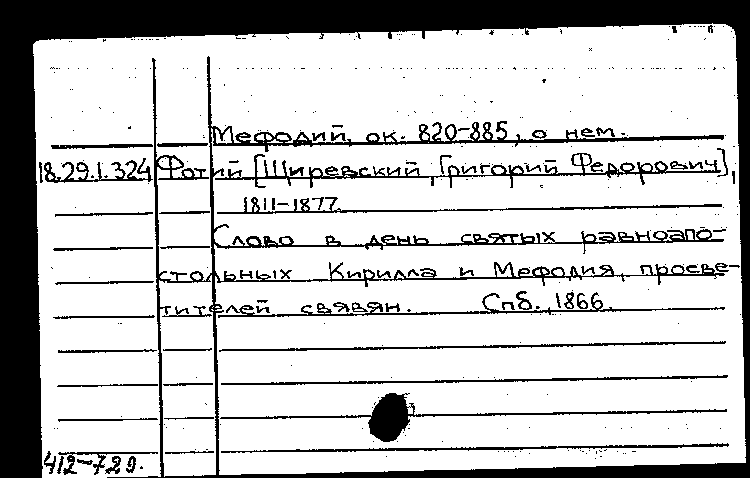 Мефодий, ок. 820-885, о нем.
18.29.1.324 Фотий [Щиревский, Григорий Федорович],
1811-1877.
Слово в день святых равноапо-
стольных Кирилла и Мефодия, просве-
тителей славян. Спб., 1866.
412-729.